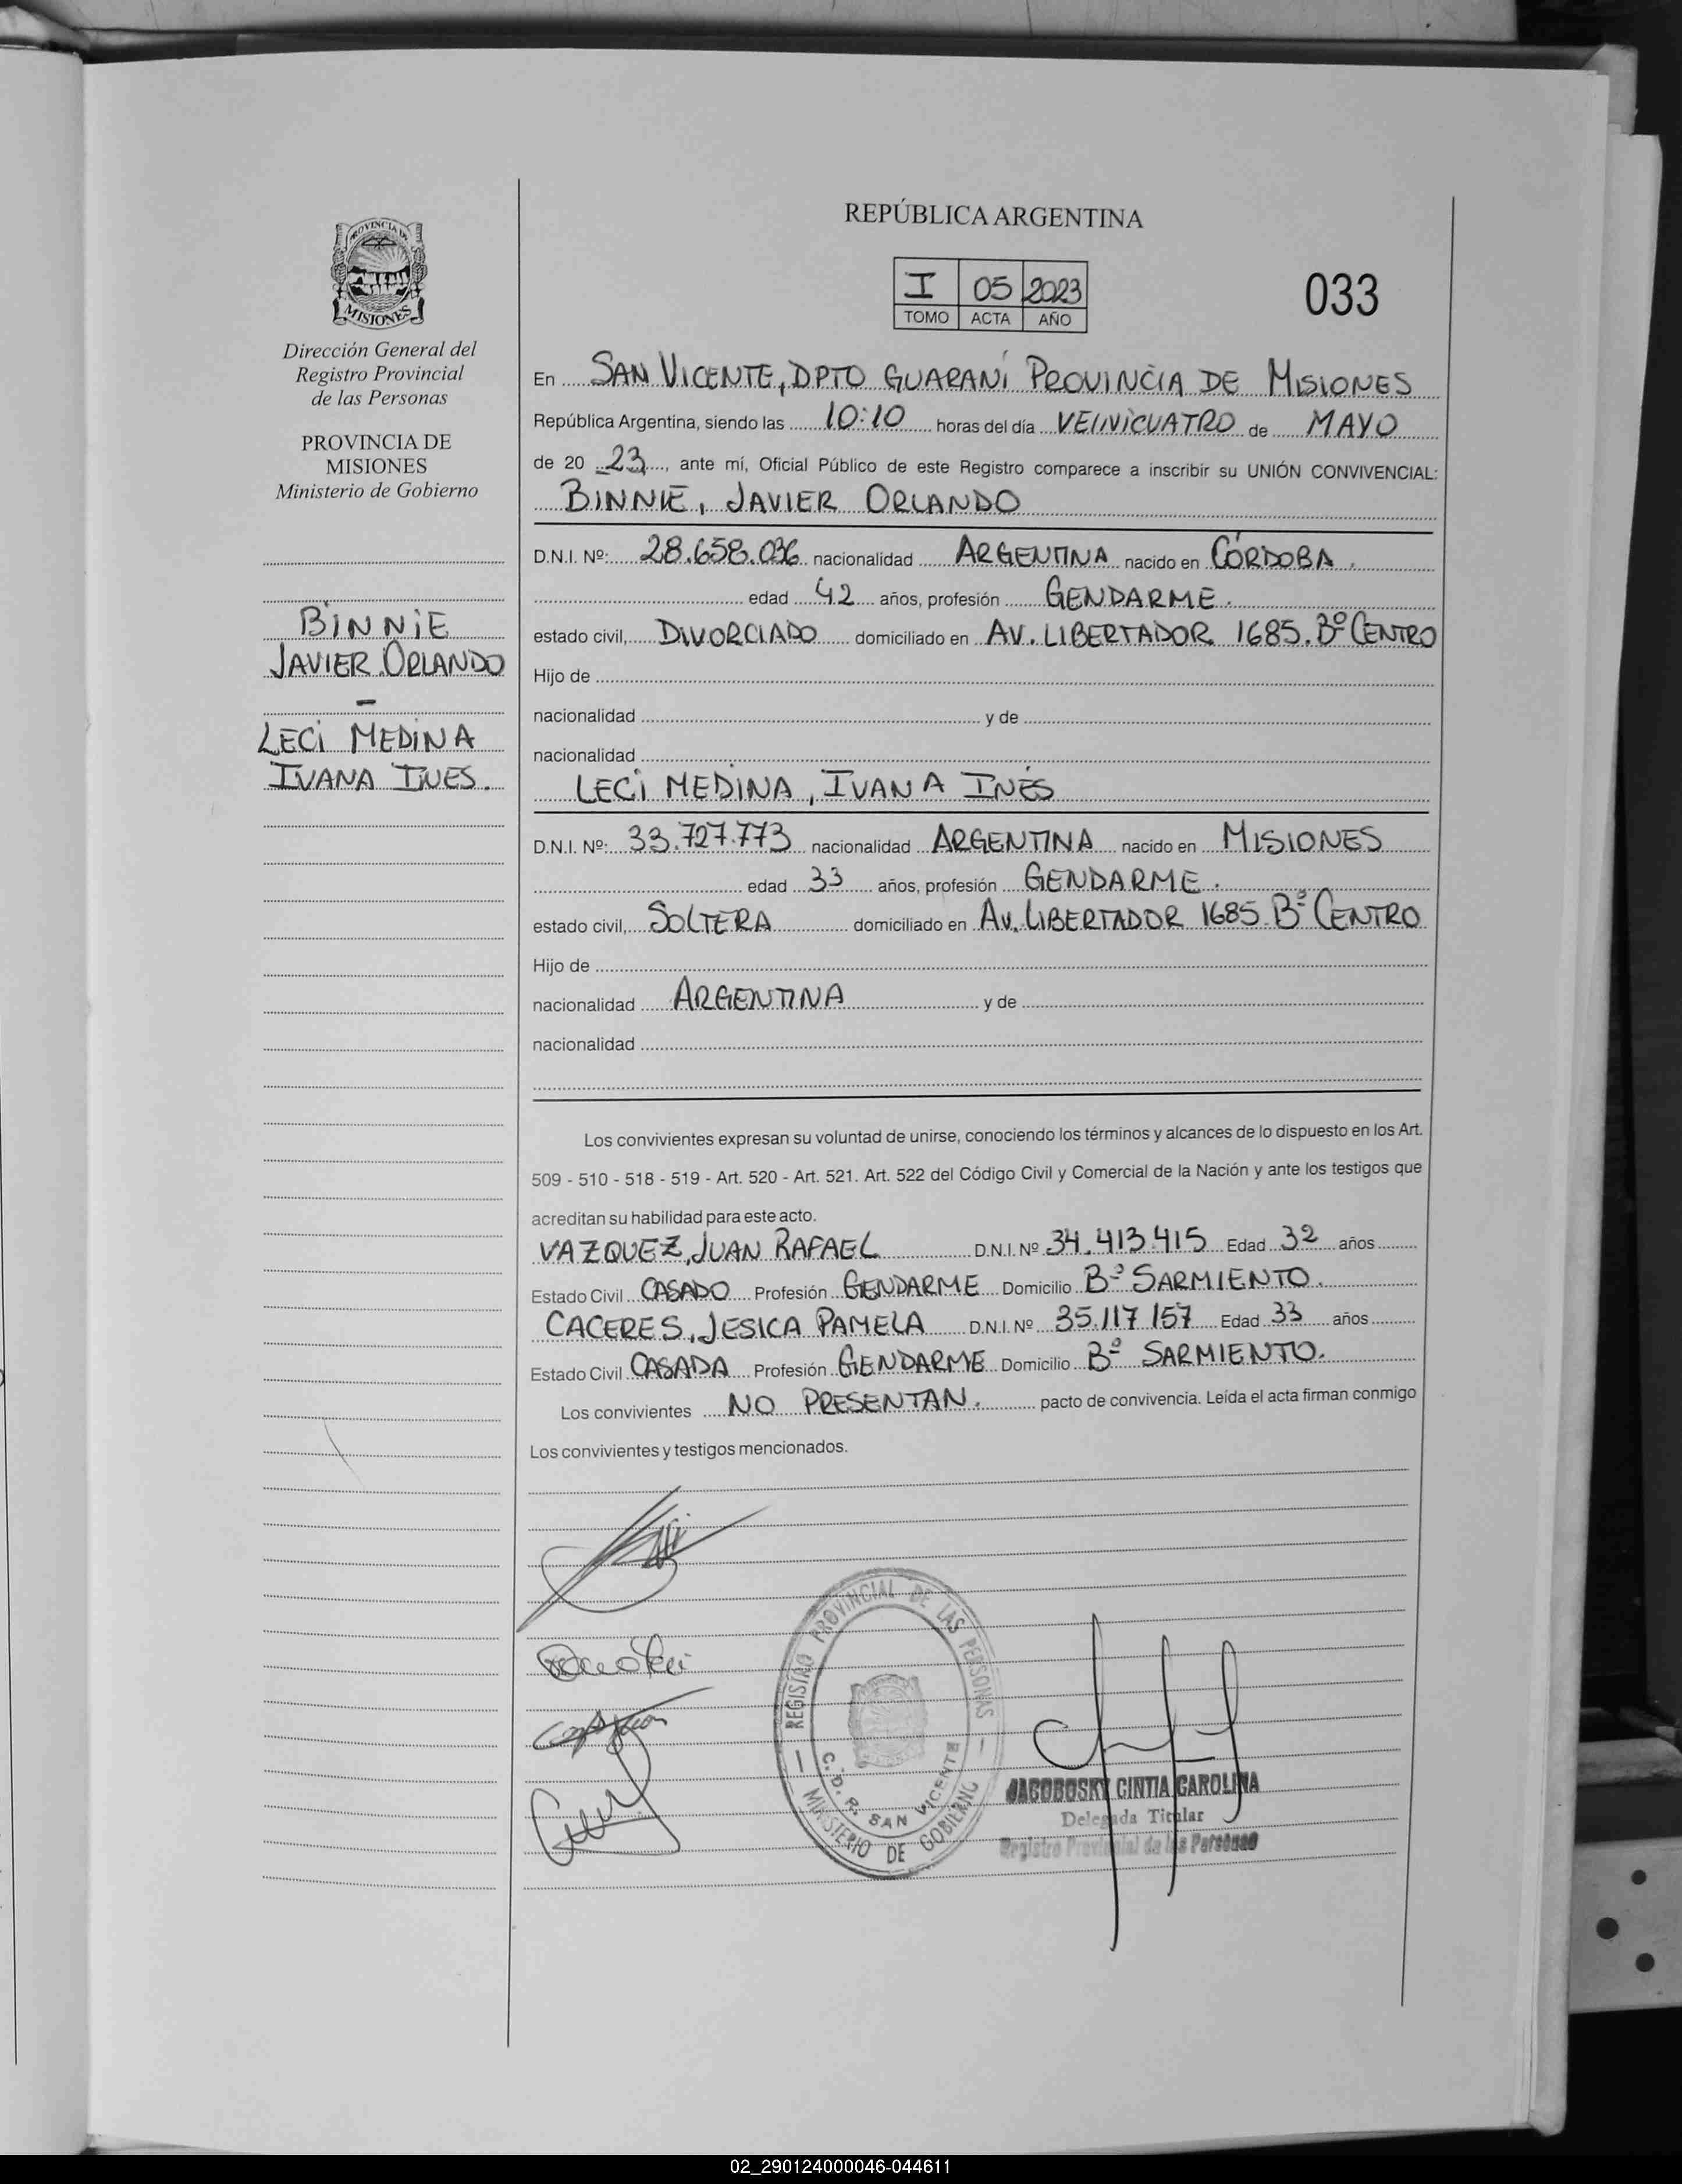 REPÚBLICA ARGENTINA
I 05 2023
TOMO ACTA AÑO
033
PROVINCIA DE
MISIONES
Dirección General del
Registro Provincial
de las Personas
PROVINCIA DE
MISIONES
Ministerio de Gobierno
BINNIE
JAVIER ORLANDO
-
LECI MEDINA
IVANA INES.
En SAN VICENTE, DPTO GUARANÍ PROVINCIA DE MISIONES
República Argentina, siendo las 10:10 horas del día VEINVICUATRO de MAYO
de 20 23, ante mí, Oficial Público de este Registro comparece a inscribir su UNIÓN CONVIVENCIAL:
BINNIE, JAVIER ORLANDO
D.N.I. Nº: 28.658.036 nacionalidad ARGENTINA nacido en CÓRDOBA.
edad 42 años, profesión GENDARME.
estado civil, DIVORCIADO domiciliado en AV. LIBERTADOR 1685. Bº CENTRO
Hijo de
nacionalidad y de
nacionalidad
LECI MEDINA, IVANA INÉS
D.N.I. Nº: 33.727.773 nacionalidad ARGENTINA nacido en MISIONES
edad 33 años, profesión GENDARME.
estado civil, SOLTERA domiciliado en AV. LIBERTADOR 1685 Bº CENTRO
Hijo de
nacionalidad ARGENTINA y de
nacionalidad
Los convivientes expresan su voluntad de unirse, conociendo los términos y alcances de lo dispuesto en los Art.
509 - 510 - 518 - 519 - Art. 520 - Art. 521. Art. 522 del Código Civil y Comercial de la Nación y ante los testigos que
acreditan su habilidad para este acto.
VAZQUEZ, JUAN RAFAEL D.N.I. Nº 34.413.415 Edad 32 años
Estado Civil CASADO Profesión GENDARME Domicilio Bº SARMIENTO.
CACERES, JESICA PAMELA D.N.I. Nº 35.117 157 Edad 33 años
Estado Civil CASADA Profesión GENDARME Domicilio Bº SARMIENTO.
Los convivientes NO PRESENTAN. pacto de convivencia. Leída el acta firman conmigo
Los convivientes y testigos mencionados.
REGISTRO PROVINCIAL DE LAS PERSONAS
C. D. R. SAN VICENTE
MINISTERIO DE GOBIERNO
JACOBOSKY CINTIA CAROLINA
Delegada Titular
Registro Provincial de las Personas
02_290124000046-044611